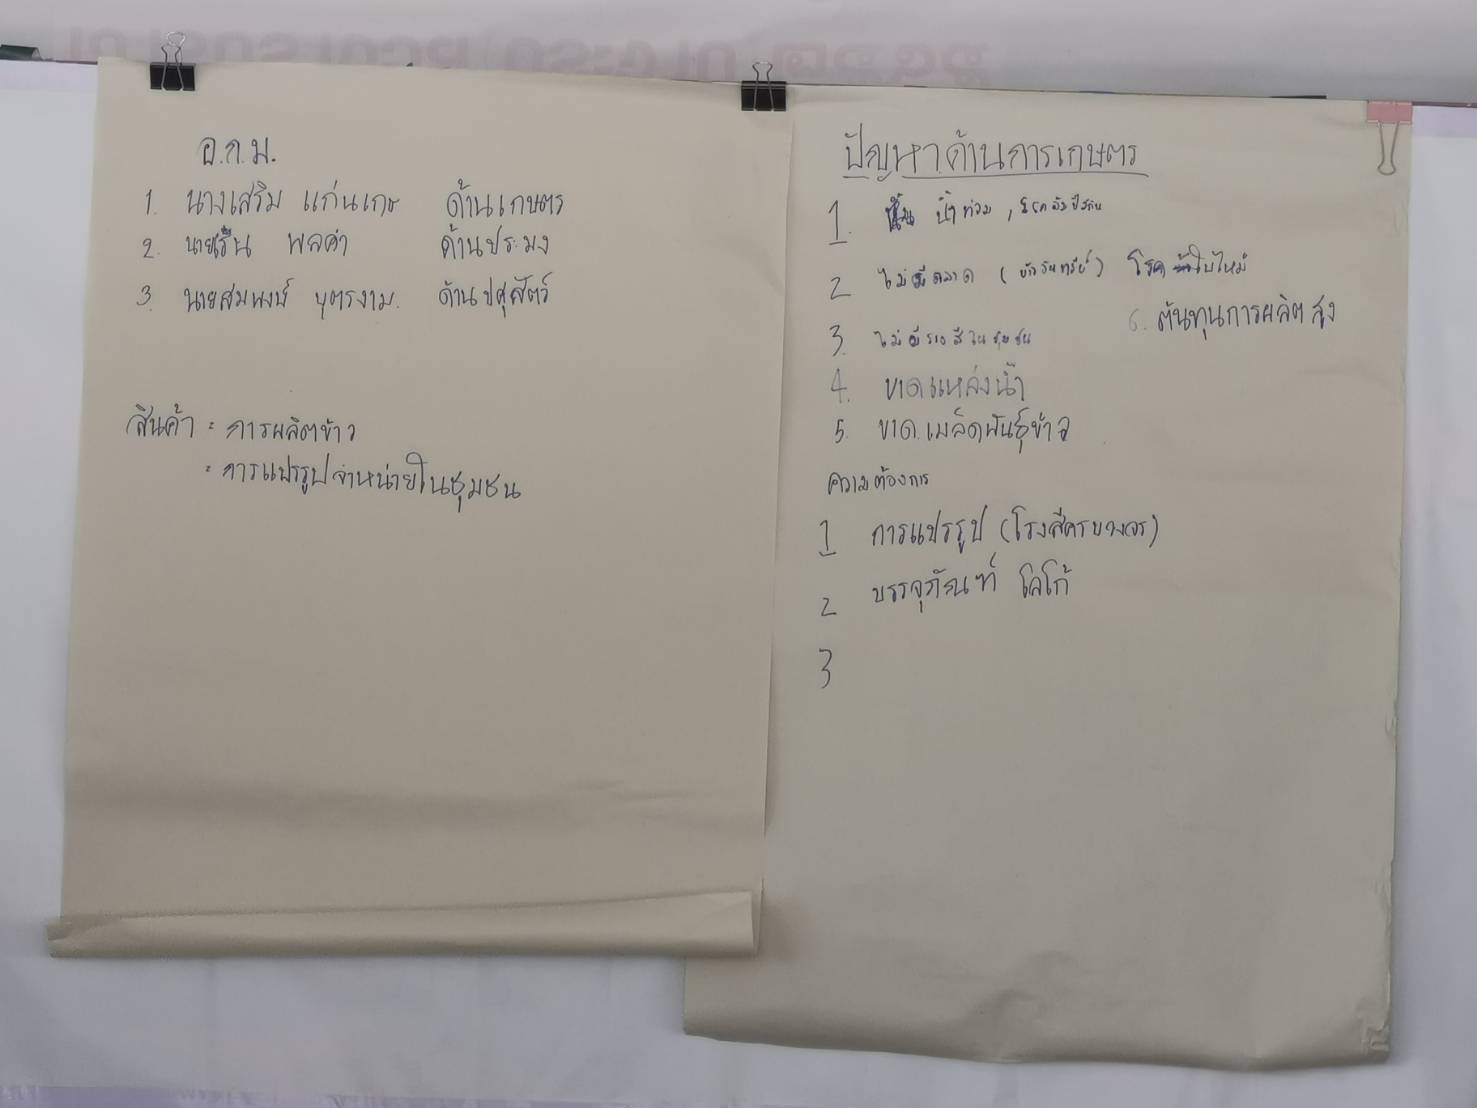 อ.ก.ม.
1. นางเสริม แก่นเกษ ด้านเกษตร
2. นายเริ่น พลคำ ด้านประมง
3. นายสมพงษ์ บุตรงาม. ด้านปศุสัตว์
สินค้า = การผลิตข้าว
= การแปรรูปจำหน่ายในชุมชน
ปัญหาด้านการเกษตร
1. น้ำท่วม,
2 ไม่มีตลาด ( โรค ใบไหม้
3. ไม่มีโรงสีในชุมชน
6. ต้นทุนการผลิตสูง
4. ขาดแหล่งน้ำ
5. ขาดเมล็ดพันธุ์ข้าว
ความต้องการ
1 การแปรรูป (โรงสีครบวงจร)
2 บรรจุภัณฑ์ โลโก้
3